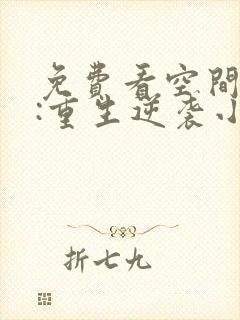 免費看空間
:重生逆袭小
折七九